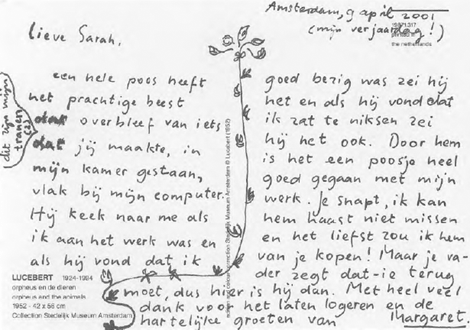 Amsterdam, 9 april 2001
(mijn verjaardag!)
the netherlands
lieve Sarah,
een hele poos heeft
het prachtige beest
dat overbleef van iets
dat jij maakte, in
mijn kamer gestaan,
vlak bij mijn computer.
Hij keek naar me als
ik aan het werk was en
als hij vond dat ik
dit zijn mijn
tranen
goed bezig was zei hij
het en als hij vond dat
ik zat te niksen zei
hij het ook. Door hem
is het een poosje heel
goed gegaan met mijn
werk. Je snapt, ik kan
hem haast niet missen
en het liefst zou ik hem
van je kopen! Maar je va-
der zegt dat-ie terug
moet, dus hier is hij dan. Met heel veel
dank voor het laten logeren en de
hartelijke groeten van Margaret.
LUCEBERT 1924-1994
orpheus en de dieren
orpheus and the animals
1952 - 42 x 56 cm
Collection Stedelijk Museum Amsterdam
collection Stedelijk Museum Amsterdam © Lucebert (1952)